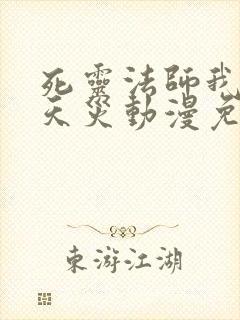 死靈法師我
天災動漫免
東游江湖